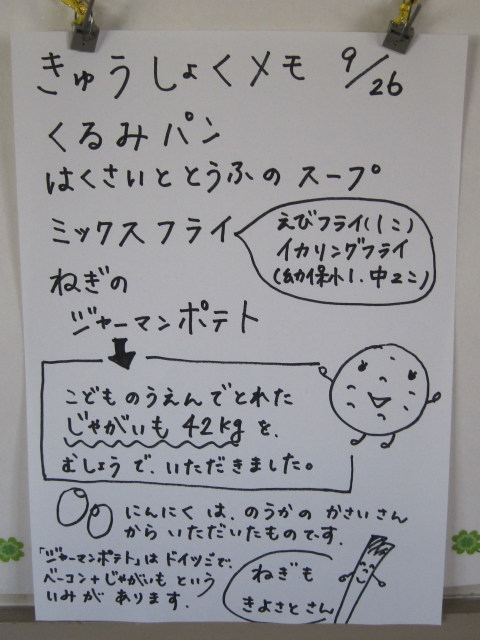 きゅうしょくメモ 9/26
くるみパン
はくさいととうふのスープ
ミックスフライ
えびフライ(1こ)
イカリングフライ
(幼保小1.中2こ)
ねぎの
ジャーマンポテト
こどものうえんでとれた
じゃがいも 42kgを、
むしょうで、いただきました。
にんにくは、のうかの かさいさん
からいただいたものです.
「ジャーマンポテト」はドイツごで、
ベーコン+じゃがいもという
いみがあります.
ねぎも
きよさとさん